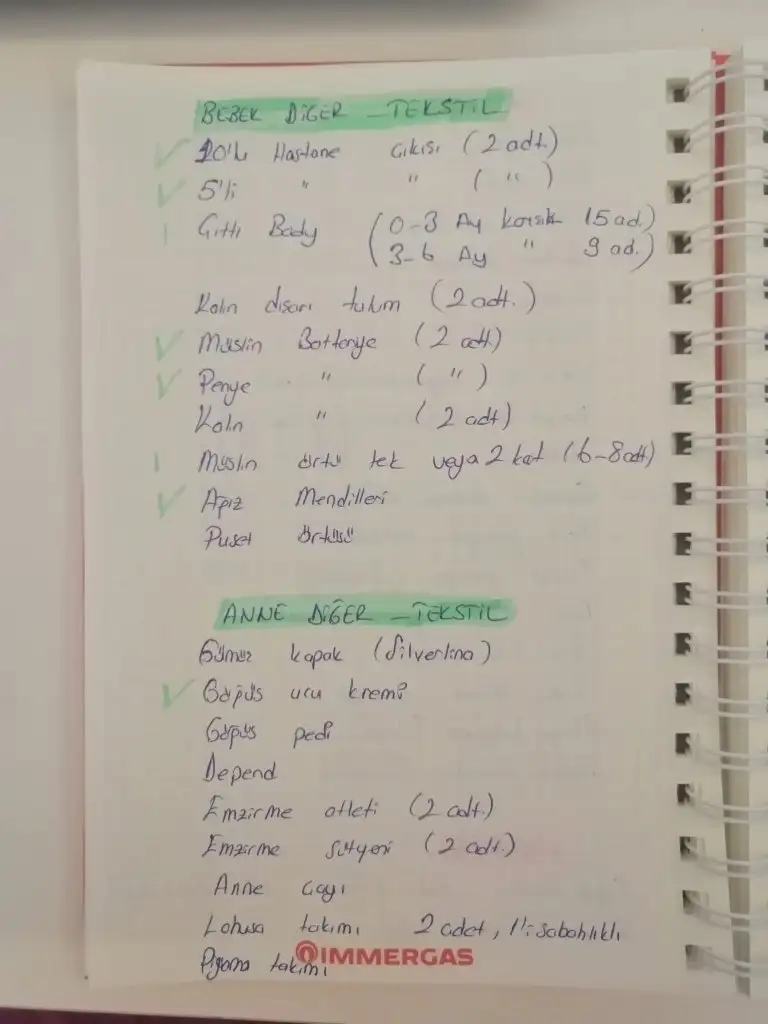 BEBEK DİĞER - TEKSTİL
10'lu Hastane Çıkışı (2 adt.)
5'li " " ( " )
Çıtlı Body (0-3 Ay karışık 15 ad.)
3-6 Ay " 9 ad.)
Kalın dışarı tulum (2 adt.)
Müslin Battaniye (2 adt.)
Penye " ( " )
Kalın " (2 adt)
Müslin örtü tek veya 2 kat (6-8 adt)
Ağız Mendilleri
Puset örtüsü
ANNE DİĞER - TEKSTİL
Gümüş kapak (Silverlina)
Göğüs ucu kremi
Göğüs pedi
Depend
Emzirme atleti (2 adt.)
Emzirme sütyeni (2 adt.)
Anne çayı
Lohusa takımı 2 adet, 1'i sabahlıklı
Pijama takımı
IMMERGAS